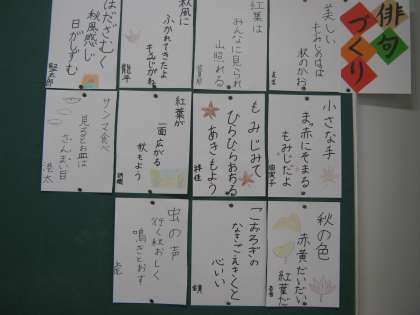 俳句
づくり
美しい
もみじのはは
秋のかお
紅葉は
みんなに見られ
山照れる
秋風に
ふかれてきたよ
もみじがね
龍平
はださむく
秋風感じ
日がしずむ
小さな手
まっ赤にそまる
もみじだよ
もみじみて
ひらひらおちる
あきもよう
紅葉が
一面広がる
秋もよう
サンマ食べ
見るとお皿は
さんまい目
秋の色
赤黄だいだい
紅葉だ
こおろぎの
なきごえきくと
心いい
虫の声
行く秋おしく
鳴きとおす